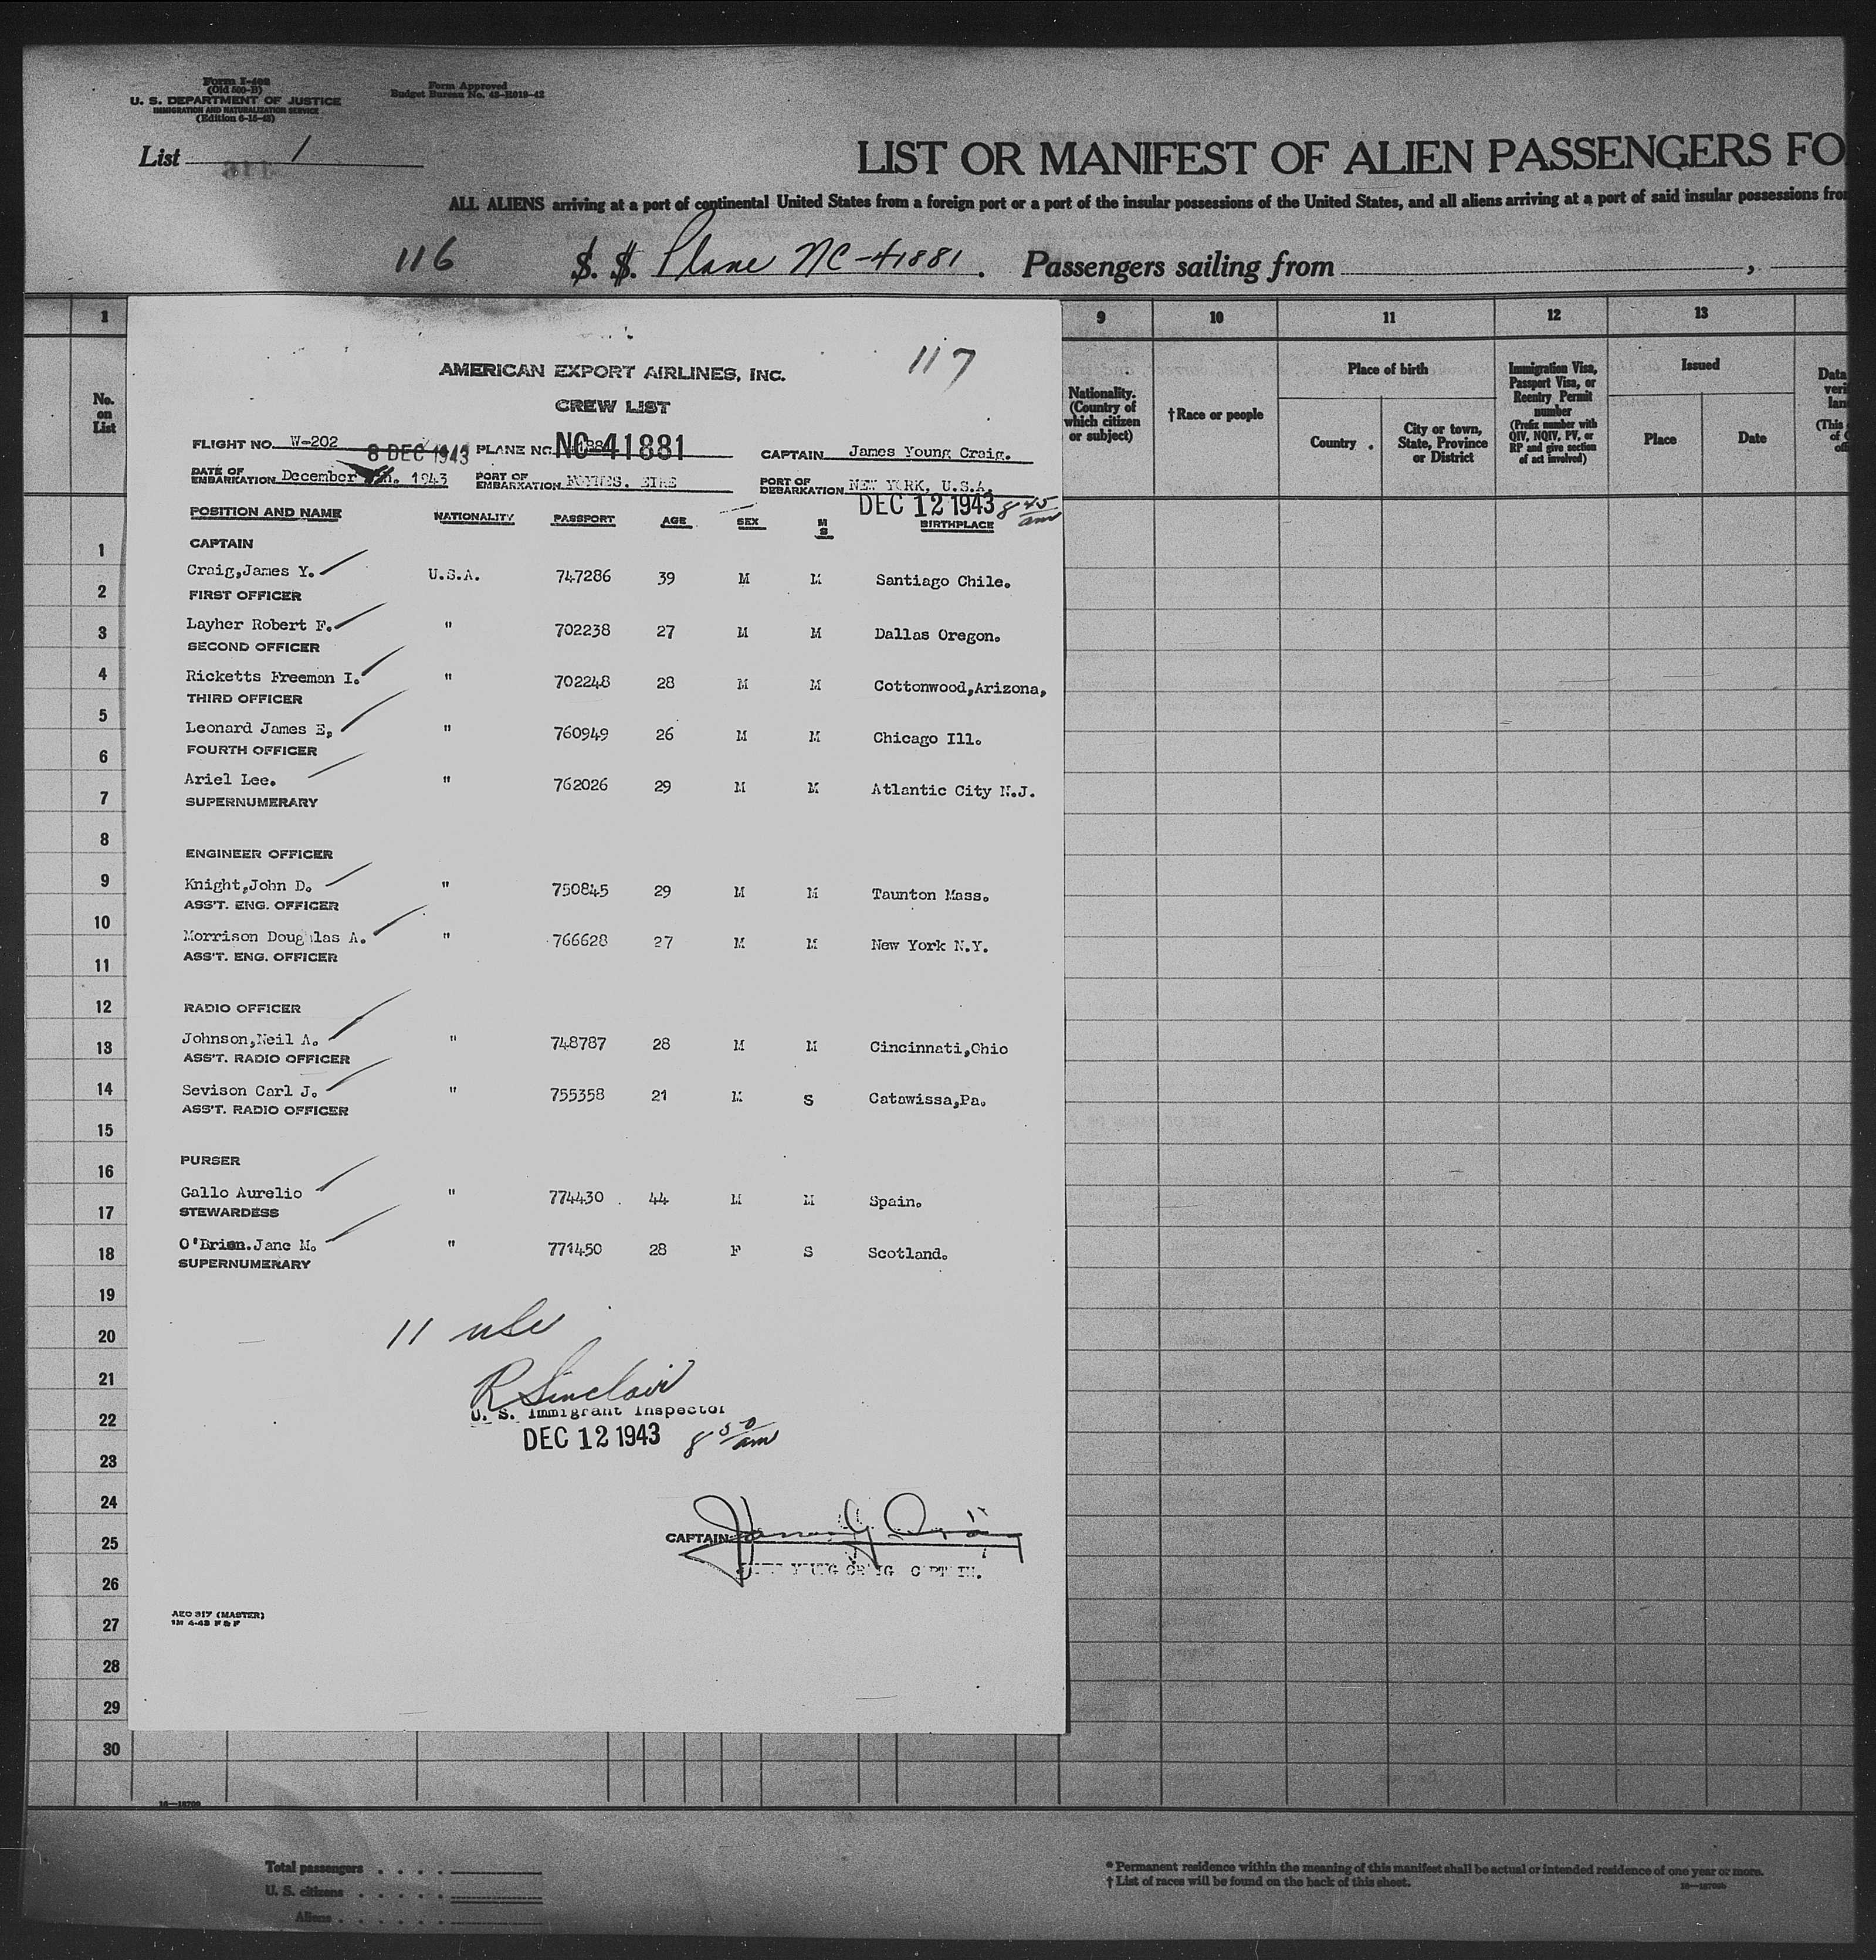 Form I-402
(Old 500-B)
U. S. DEPARTMENT OF JUSTICE
IMMIGRATION AND NATURALIZATION SERVICE
(Edition 6-15-43)
Form Approved
Budget Bureau No. 43-R019-42
List 1
LIST OR MANIFEST OF ALIEN PASSENGERS FO
ALL ALIENS arriving at a port of continental United States from a foreign port or a port of the insular possessions of the United States, and all aliens arriving at a port of said insular possessions from
116 S. S. Plane NC-41881. Passengers sailing from ,
1 9 10 11 12 13
No. on List
Nationality. (Country of which citizen or subject)
†Race or people
Place of birth
Country
City or town, State, Province or District
Immigration Visa, Passport Visa, or Reentry Permit number
(Prefix number with QIV, NQIV, PV, or RP and give section of act involved)
Issued
Place
Date
117
AMERICAN EXPORT AIRLINES, INC.
CREW LIST
FLIGHT NO. W-202 8 DEC 1943 PLANE NO. NC 41881 CAPTAIN James Young Craig.
DATE OF EMBARKATION December 1943 PORT OF EMBARKATION FOYNES. EIRE PORT OF DEBARKATION NEW YORK, U.S.A.
DEC 12 1943 8 45 am
POSITION AND NAME NATIONALITY PASSPORT AGE SEX M S BIRTHPLACE
CAPTAIN
Craig,James Y. U.S.A. 747286 39 M M Santiago Chile.
FIRST OFFICER
Layher Robert F. " 702238 27 M M Dallas Oregon.
SECOND OFFICER
Ricketts Freeman I. " 702248 28 M M Cottonwood,Arizona,
THIRD OFFICER
Leonard James E, " 760949 26 M M Chicago Ill.
FOURTH OFFICER
Ariel Lee. " 762026 29 M M Atlantic City N.J.
SUPERNUMERARY
ENGINEER OFFICER
Knight,John D. " 750845 29 M M Taunton Mass.
ASS'T. ENG. OFFICER
Morrison Douglas A. " 766628 27 M M New York N.Y.
ASS'T. ENG. OFFICER
RADIO OFFICER
Johnson,Neil A. " 748787 28 M M Cincinnati,Ohio
ASS'T. RADIO OFFICER
Sevison Carl J. " 755358 21 M S Catawissa,Pa.
ASS'T. RADIO OFFICER
PURSER
Gallo Aurelio " 774430 44 M M Spain.
STEWARDESS
O'Brien.Jane M. " 771450 28 F S Scotland.
SUPERNUMERARY
11 usc
R Sinclair
U. S. Immigrant Inspector
DEC 12 1943 8 50 am
CAPTAIN James Y Craig
JAMES YOUNG CRAIG CAPTAIN.
AEO 317 (MASTER)
1M 4-43 F & F
1
2
3
4
5
6
7
8
9
10
11
12
13
14
15
16
17
18
19
20
21
22
23
24
25
26
27
28
29
30
Total passengers
U. S. citizens
Aliens
* Permanent residence within the meaning of this manifest shall be actual or intended residence of one year or more.
† List of races will be found on the back of this sheet.